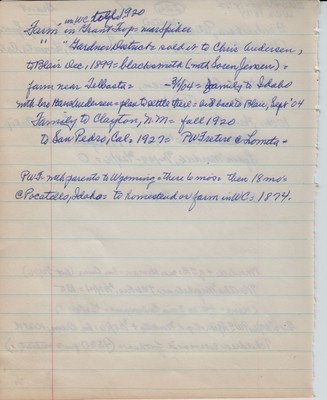 in WC till 1920
Farm" in Grant Twp =
" "Gardner District = sold it to Chris Andersen,
to Blair Dec, 1899 = blacksmith (with Soren Jensen) =
farm near Telbasta = 3/1/04 = family to Idaho
with bro Andersen = plan to settle there = but back to Blair, Sept '04
Family to Clayton, N.M = fall 1920
to San Pedro, Cal. 1927 = PWF retire @ Lomita =
PWF = with parents to Wyoming = there 6 mos = then 18 mos
@ Pocatello, Idaho = to homestead or farm in WC = 1874.